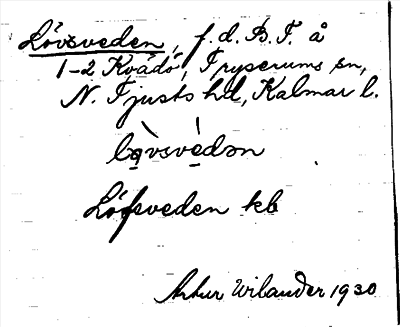 Lövsveden, f.d. B.T. å
1-2 Kvädö, Tryserums sn,
N. Tjusts hd, Kalmar l.
lò̱vsvè̱dən
Löfsveden kb
Artur Wilander 1930